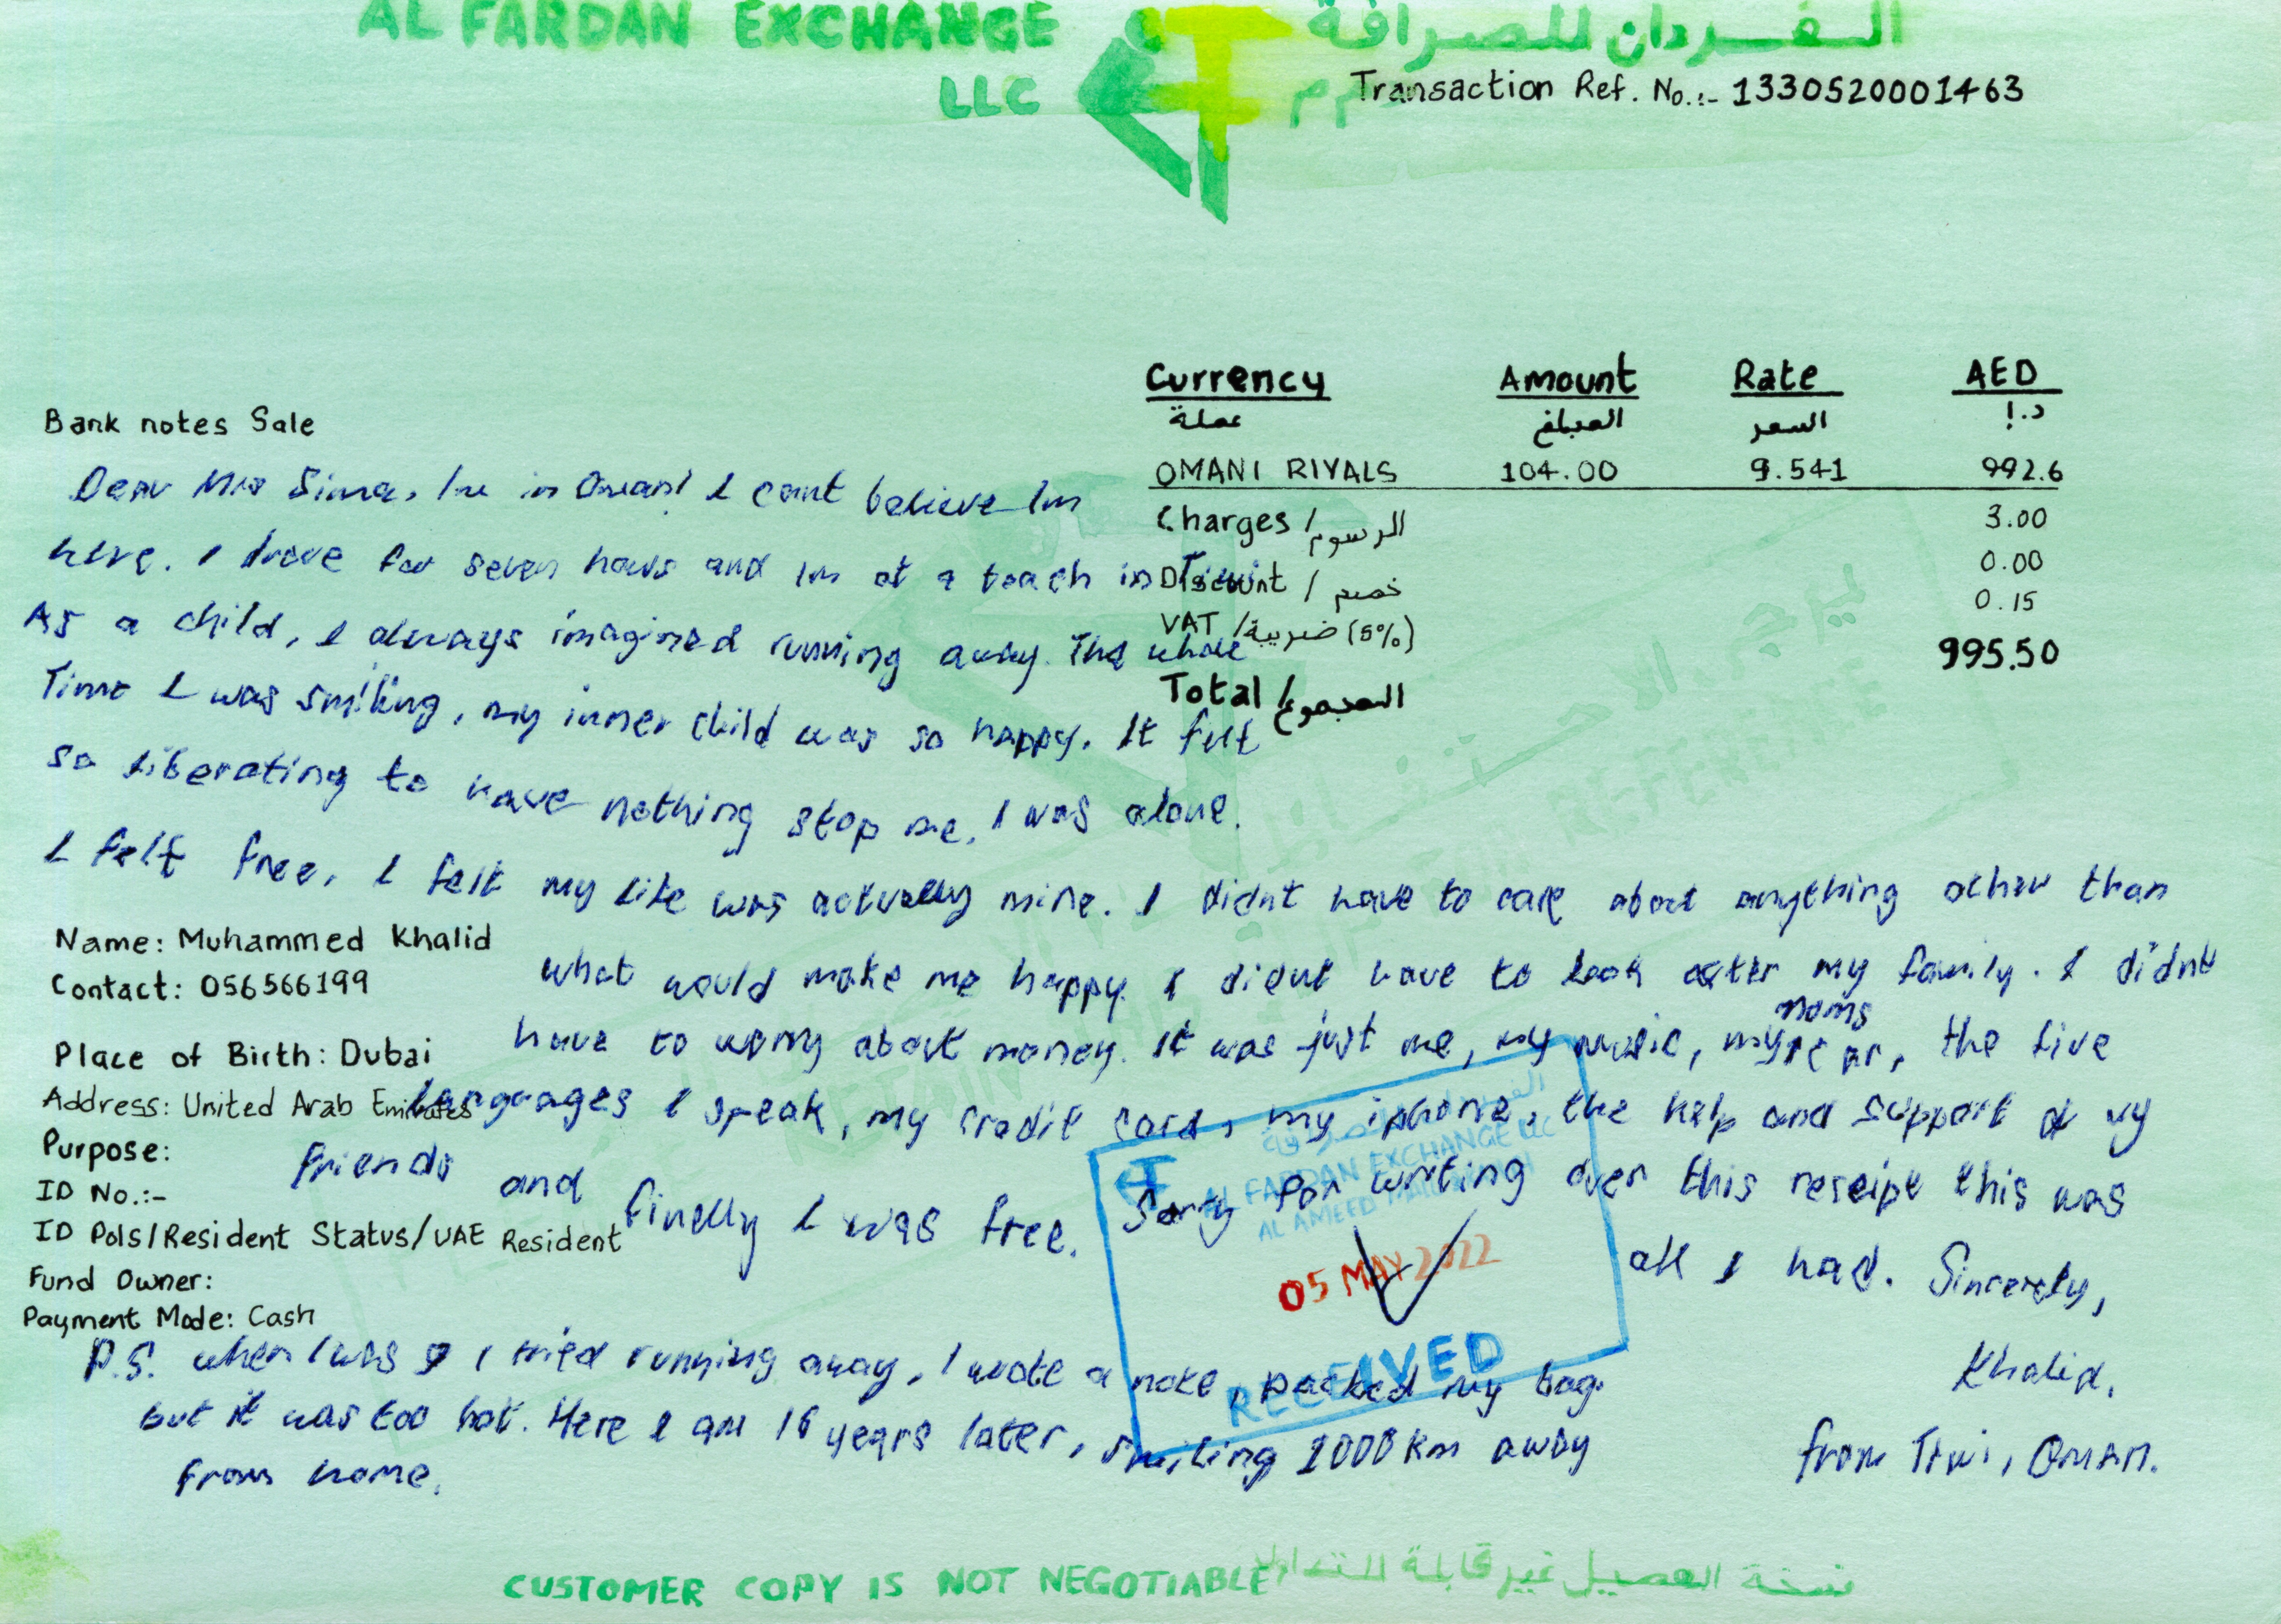 AL FARDAN EXCHANGE
LLC
الفردان للصرافة
ذ.م.م
Transaction Ref. No.:- 1330520001463
Currency Amount Rate AED
عملة المبلغ السعر د.إ
OMANI RIYALS 104.00 9.541 992.6
Charges / الرسوم 3.00
Discount / خصم 0.00
VAT / ضريبة (5%) 0.15
Total / المجموع 995.50
Bank notes Sale
Dear Mrs Sima, Im in Oman! I cant believe Im
here. I drove for seven hours and Im at a beach in Tiwi
As a child, I always imagined running away. The whole
Time I was smiling, my inner child was so happy. It felt
so liberating to have nothing stop me. I was alone.
I felt free. I felt my life was actually mine. I didnt have to care about anything other than
what would make me happy. I didnt have to look after my family. I didnt
have to worry about money. It was just me, my music, my moms car, the five
languages I speak, my credit card, my iphone, the help and support of my
friends and finally I was free. Sorry for writing over this receipt this was
all I had. Sincerely,
Khalid,
from Tiwi, Oman.
Name: Muhammed Khalid
Contact: 056566199
Place of Birth: Dubai
Address: United Arab Emirates
Purpose:
ID No.:-
ID Pols/Resident Status/UAE Resident
Fund Owner:
Payment Mode: Cash
P.S. when I was I tried running away, I wrote a note, packed my bag.
but it was too hot. Here I am 16 years later, smiling 1000 km away
from home.
AL FARDAN EXCHANGE LLC
05 MAY 2022
RECEIVED
RETAIN
REFERENCE
CUSTOMER COPY IS NOT NEGOTIABLE
نسخة العميل غير قابلة للتداول